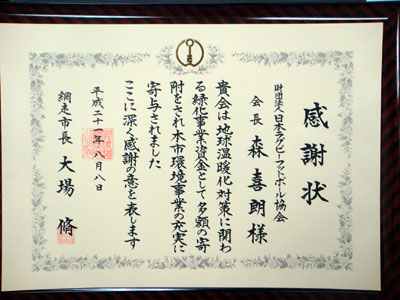 感謝状
財団法人日本ラグビーフットボール協会
会長 森喜朗様
貴会は地球温暖化対策に関わ
る緑化事業資金として多額の寄
附をされ本市環境事業の充実に
寄与されました
ここに深く感謝の意を表します
平成二十一年八月八日
網走市長 大場脩